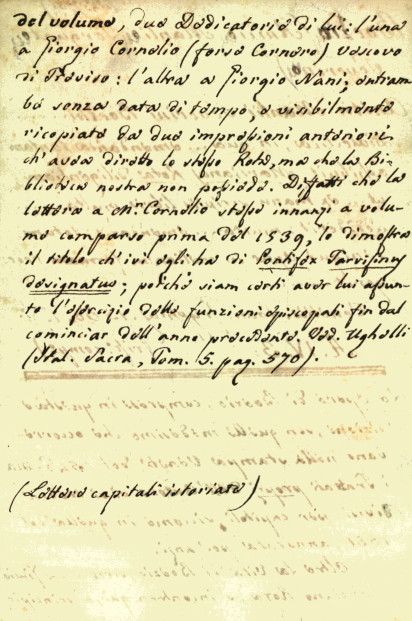 del volume, due Dedicatorie di lui: l'una
a Giorgio Cornelio (forse Cornaro) Vescovo
di Treviso: l'altra a Giorgio Nani; entram
be senza data di tempo, e visibilmente
ricopiate da due impressioni anteriori
ch'avea dirette lo stesso Rota, ma che la Bi-
blioteca nostra non possiede. Diffatti che la
lettera a Mr. Cornelio stesse innanzi a volu-
me comparso prima del 1539, lo dimostra
il titolo ch'ivi egli ha di Pontifex Tarvisinus
designatus; poichè siam certi aver lui assun-
to l'esercizio delle funzioni episcopali fin dal
cominciar dell'anno precedente. Ved. Ughelli
(Ital. Sacra, Tom. 5. pag. 570).
(Lettere capitali istoriate)